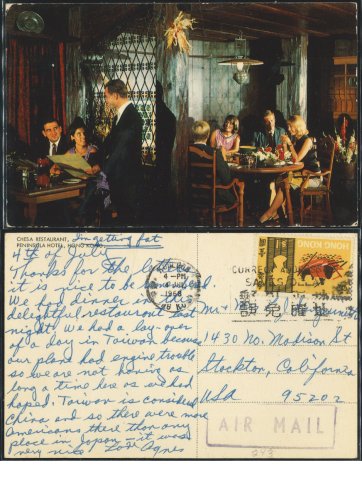 CHESA RESTAURANT,
PENINSULA HOTEL, HONG KONG
Im getting fat
4th of July
Thanks for the letters
it is nice to be
We had dinner in this
delightful restaurant last
night. We had a lay-over
of a day in Taiwan because
our plane had engine trouble
so we are not having as
long a time here as we had
hoped. Taiwan is considered
China and so there were more
Americans there than any
place in Japan - it was
very nice Love Agnes
4 - PM
1968
HONG KONG
Mr + Mrs
1430 No. Madison St
Stockton, California
USA 95202
AIR MAIL